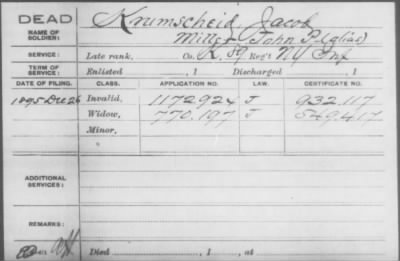 DEAD Krumscheid, Jacob
NAME OF SOLDIER: Miller, John P. (alias)
SERVICE: Late rank, Co. K, 59 Reg't NY Inf
TERM OF SERVICE: Enlisted , 1 Discharged , 1
DATE OF FILING. CLASS. APPLICATION NO. LAW. CERTIFICATE NO.
1895 Dec 26 Invalid, 1172924 J 932.117
Widow, 770.197 J 549417
Minor,
ADDITIONAL SERVICES:
REMARKS:
Died , 1 , at